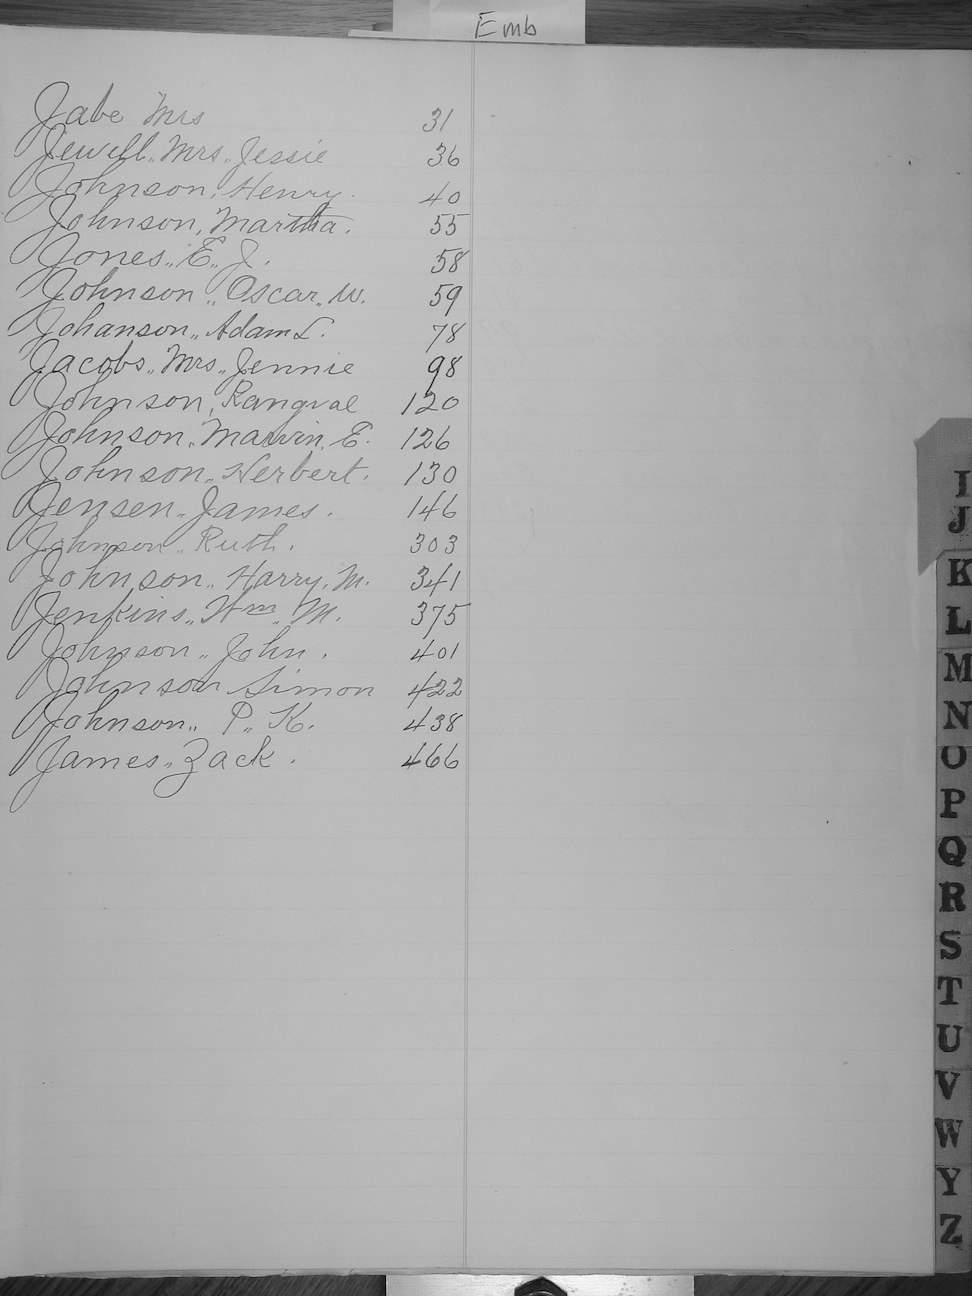 Emb
Jabe Mrs 31
Jewell, Mrs, Jessie 36
Johnson, Henry. 40
Johnson, Martha. 55
Jones, E, J. 58
Johnson, Oscar, W. 59
Johanson, Adam L. 78
Jacobs, Mrs, Jennie 98
Johnson, Rangval 120
Johnson, Marvin, E. 126
Johnson, Herbert. 130
Jensen, James. 146
Johnson, Ruth. 303
Johnson, Harry, M. 341
Jenkins, Wm, M. 375
Johnson, John. 401
Johnson Simon 422
Johnson, P, K. 438
James, Zack. 466
I
J
K
L
M
N
O
P
Q
R
S
T
U
V
W
Y
Z